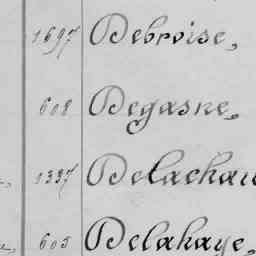 1697 Debroise,
608 Degasne,
1337 Delachau
605 Delahaye,